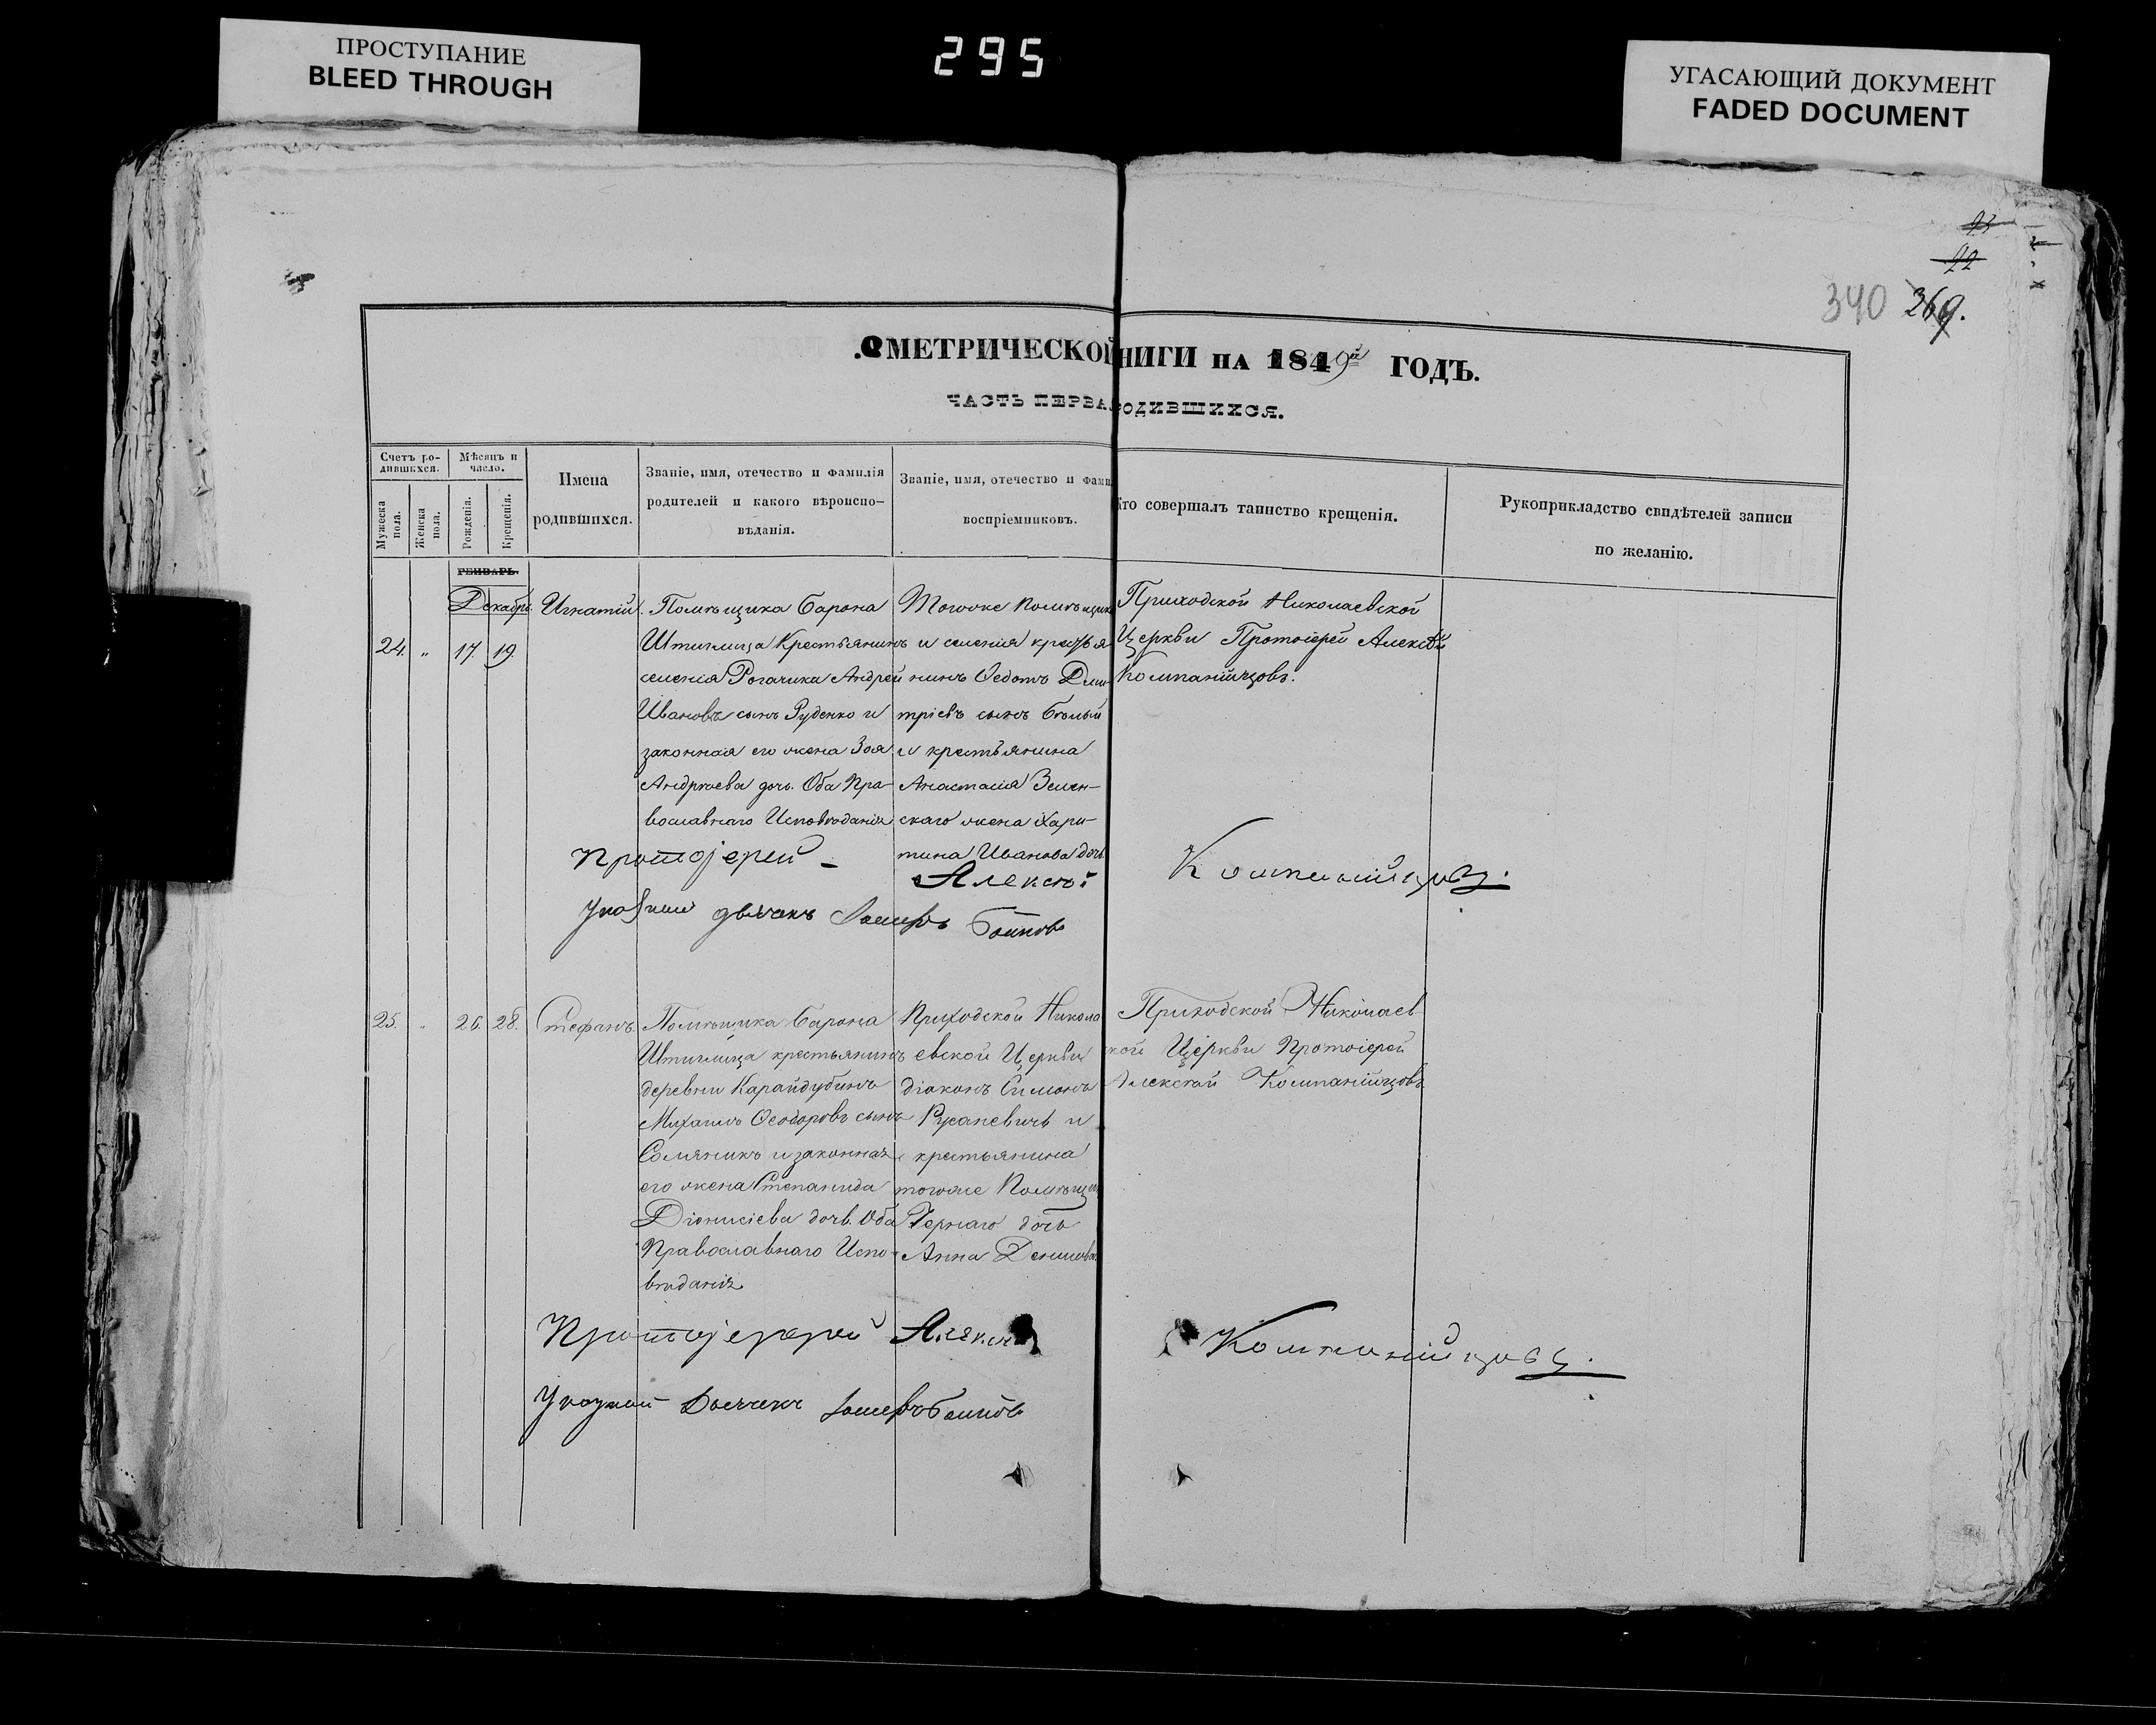 ПРОСТУПАНИЕ
BLEED THROUGH
295
УГАСАЮЩИЙ ДОКУМЕНТ
FADED DOCUMENT
22
340 269.
МЕТРИЧЕСКОЙ НИГИ НА 1849й ГОДЪ.
ЧАСТЬ ПЕРВА РОДИВШИХСЯ.
Счетъ ро-
дившихся.
Мужеска пола.
Женска пола.
Мѣсяцъ и
число.
Рожденія.
Крещенія.
Имена
родившихся.
Званіе, имя, отечество и фамилія
родителей и какого вѣроиспо-
вѣданія.
Званіе, имя, отечество и фами
воспріемниковъ.
то совершалъ таинство крещенія.
Рукоприкладство свидѣтелей записи
по желанію.
Декабрь.
24. " 17. 19.
Игнатій.
Помѣщика Барона
Штиглица Крестьянинъ
селенія Рогачика Андрей
Ивановъ сынъ Руденко и
законная его жена Зоя
Андрѣева дочь. Оба Пра-
вославнаго Исповѣданія
Тогоже помѣщика
и селенія крестья
нинъ Ѳедотъ Дми-
тріевъ сынъ Бѣлый
и крестьянина
Анастасія Зелен-
скаго жена Хари-
тина Иванова дочь.
Приходской Николаевской
Церкви Протоіерей Алексѣй
Компанійцовъ.
Протоіерей Алексѣй Компанійцовъ.
Указный дьячекъ Бойков
25. " 26. 28.
Стефанъ.
Помѣщика Барона
Штиглица крестьянинъ
деревни Карайдубинъ
Михаилъ Ѳеодоровъ сынъ
Соляникъ и законная
его жена Степанида
Діонисіева дочь. Оба
Православнаго Испо-
вѣданія
Приходской Никола
евской Церкви
діаконъ Симонъ
Русаневичъ и
крестьянина
тогоже Помѣщ
Чернаго дочь
Анна Денисова
Приходской Николаев
кой Церкви Протоіерей
Алексѣй Компанійцовъ
Протоіерей Алексѣй Компанійцовъ.
Указной Дьячекъ Бойков